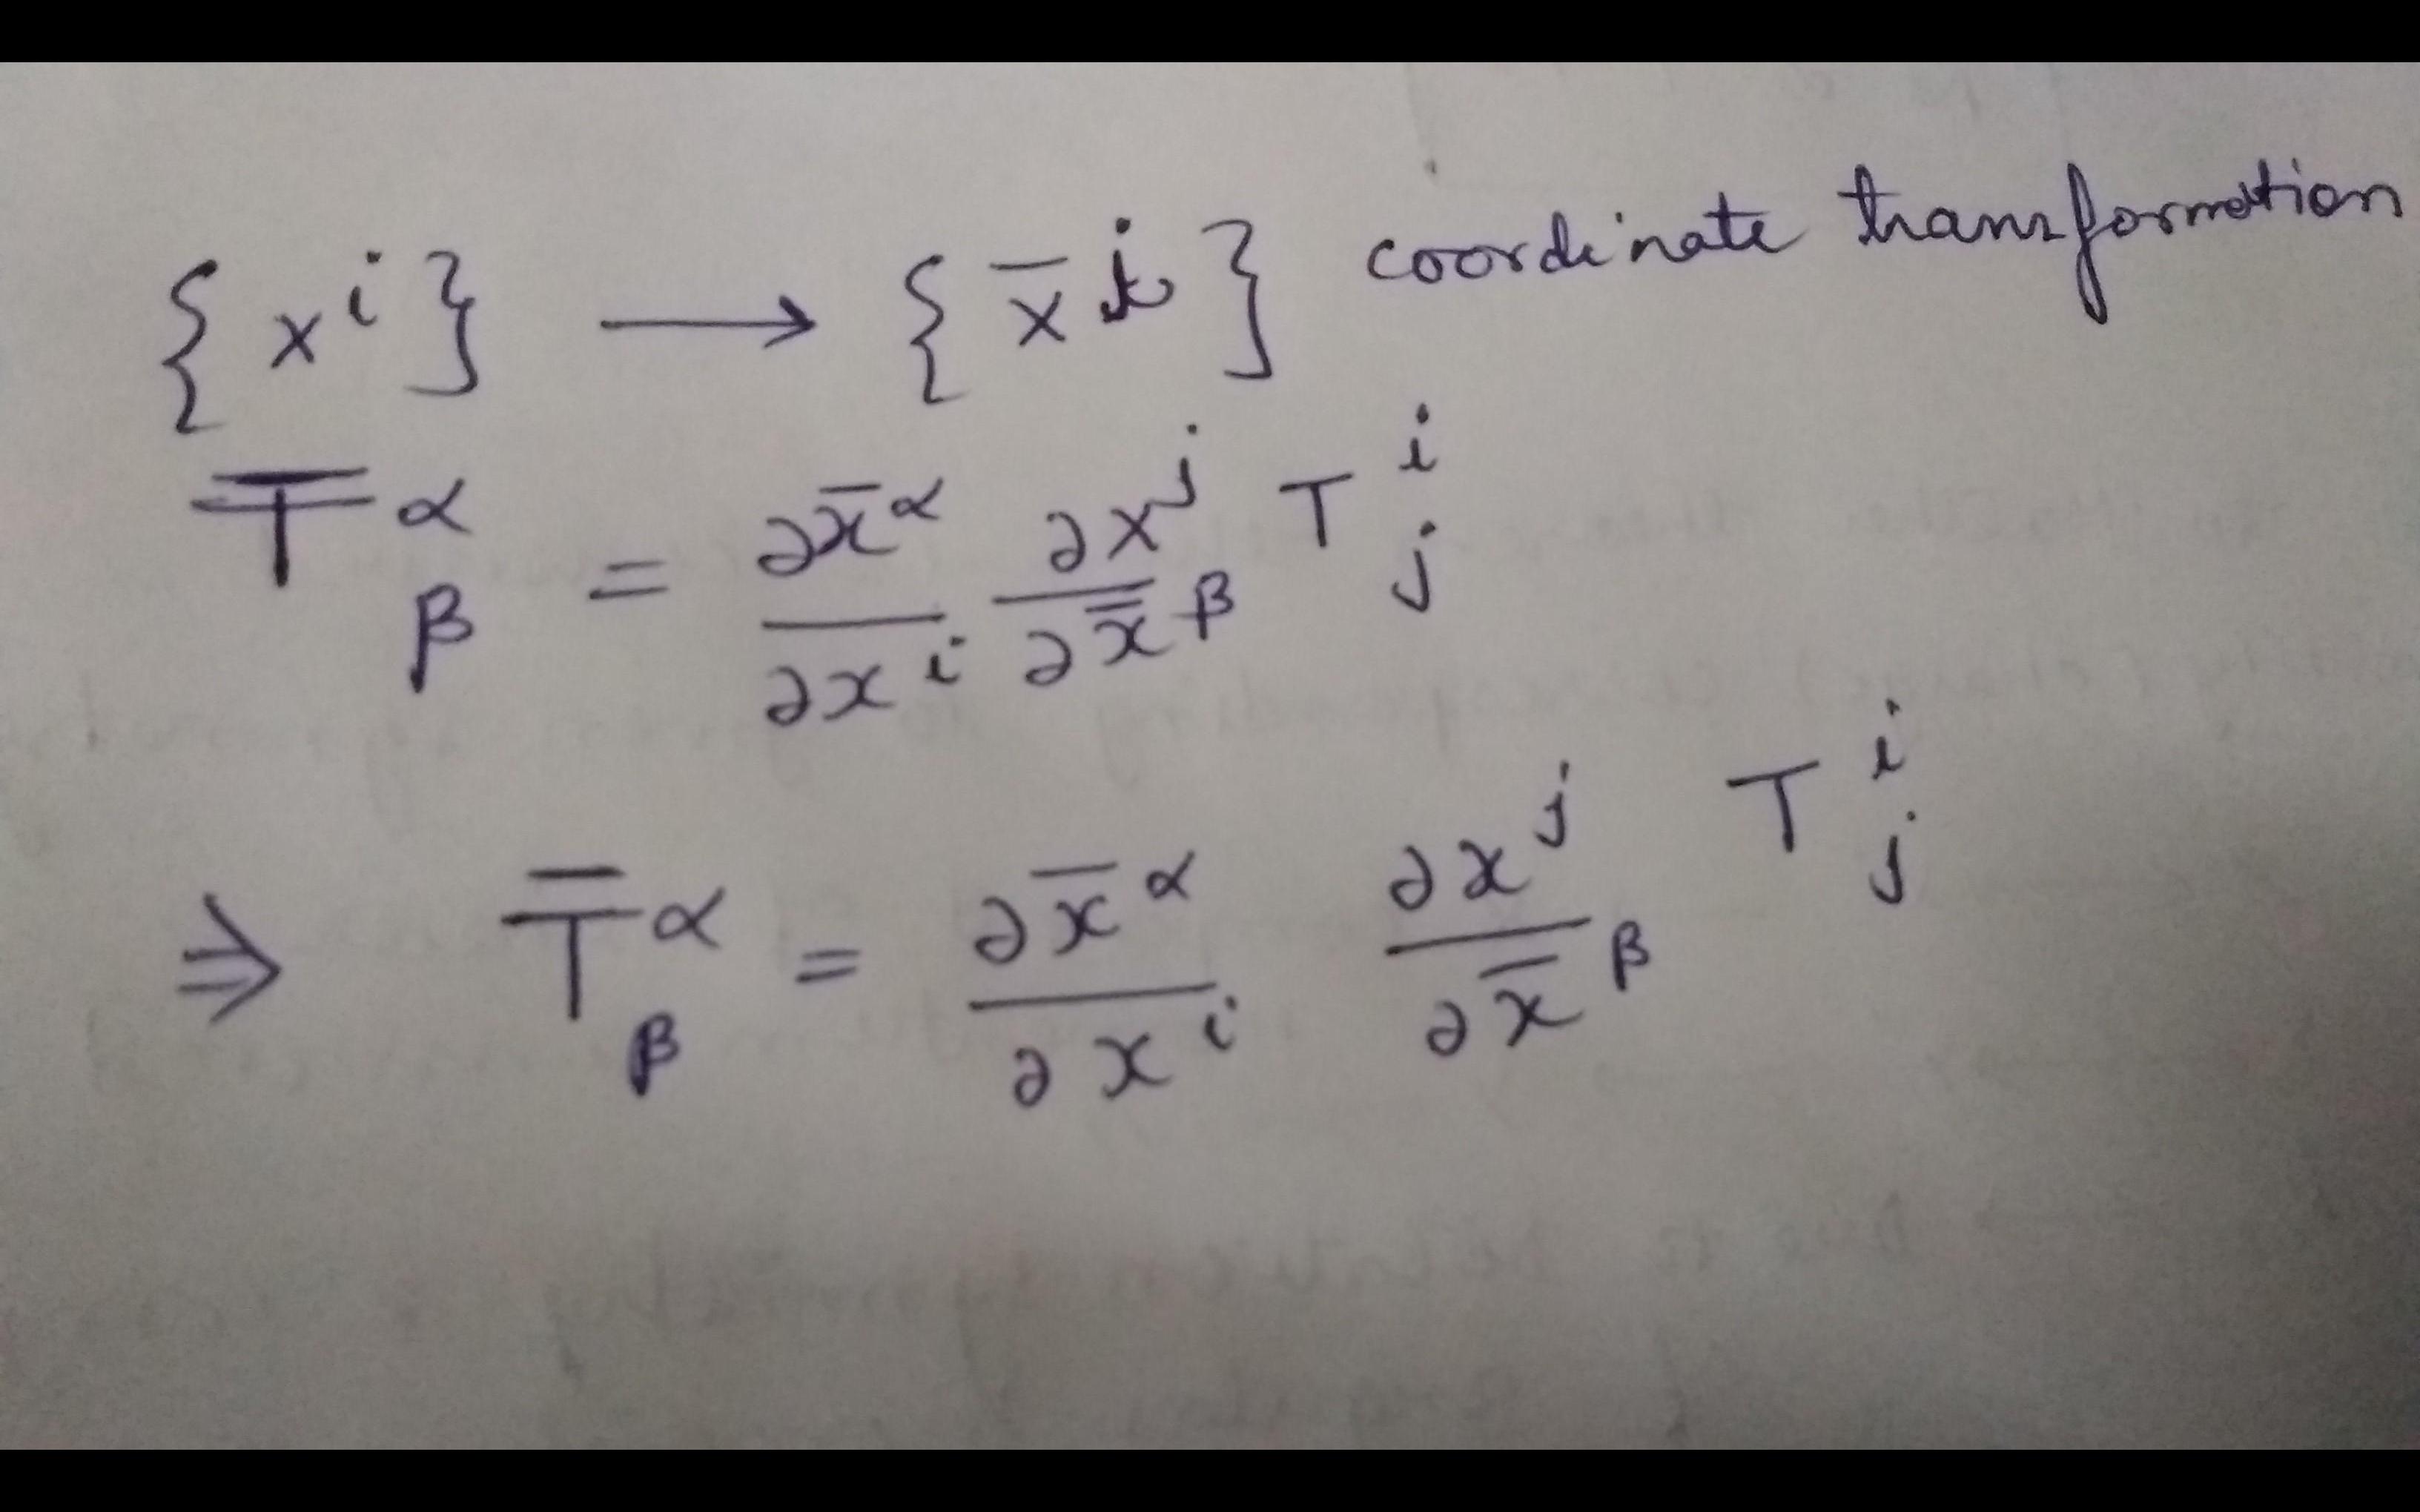 {xⁱ} → {x̄ʲ} coordinate transformation
T̄^α_β = ∂x̄^α/∂xⁱ ∂xʲ/∂x̄^β Tⁱ_j
⇒ T̄^α_β = ∂x̄^α/∂xⁱ ∂xʲ/∂x̄^β Tⁱ_j